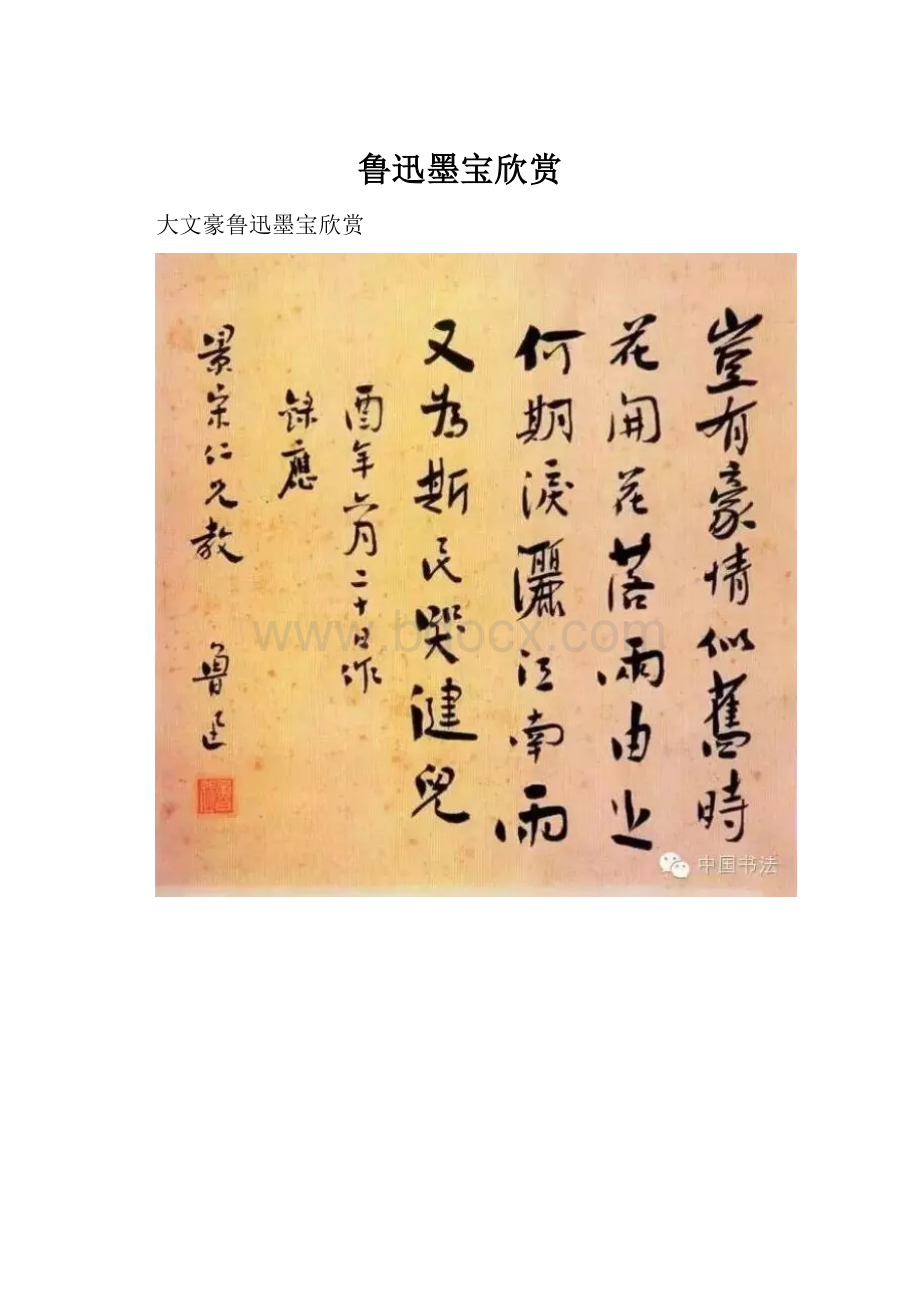 鲁迅墨宝欣赏
大文豪鲁迅墨宝欣赏
豈有豪情似舊時
花開花落兩由之
何期淚灑江南雨
又為斯民哭健兒
酉年六月二十日作
錄應
景宋仁兄教 魯迅
www.bdocx.com
中国书法